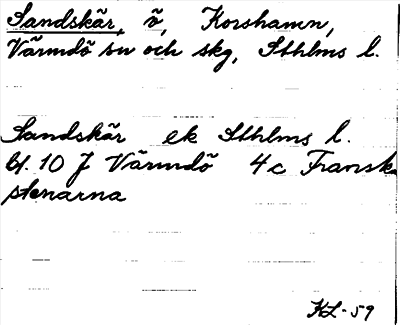 Sandskär, ö, Korshamn,
Värmdö sn och skg, Sthlms l.
Sandskär ek Sthlms l.
bl. 10 J Värmdö 4c Fransk
stenarna
KL-59